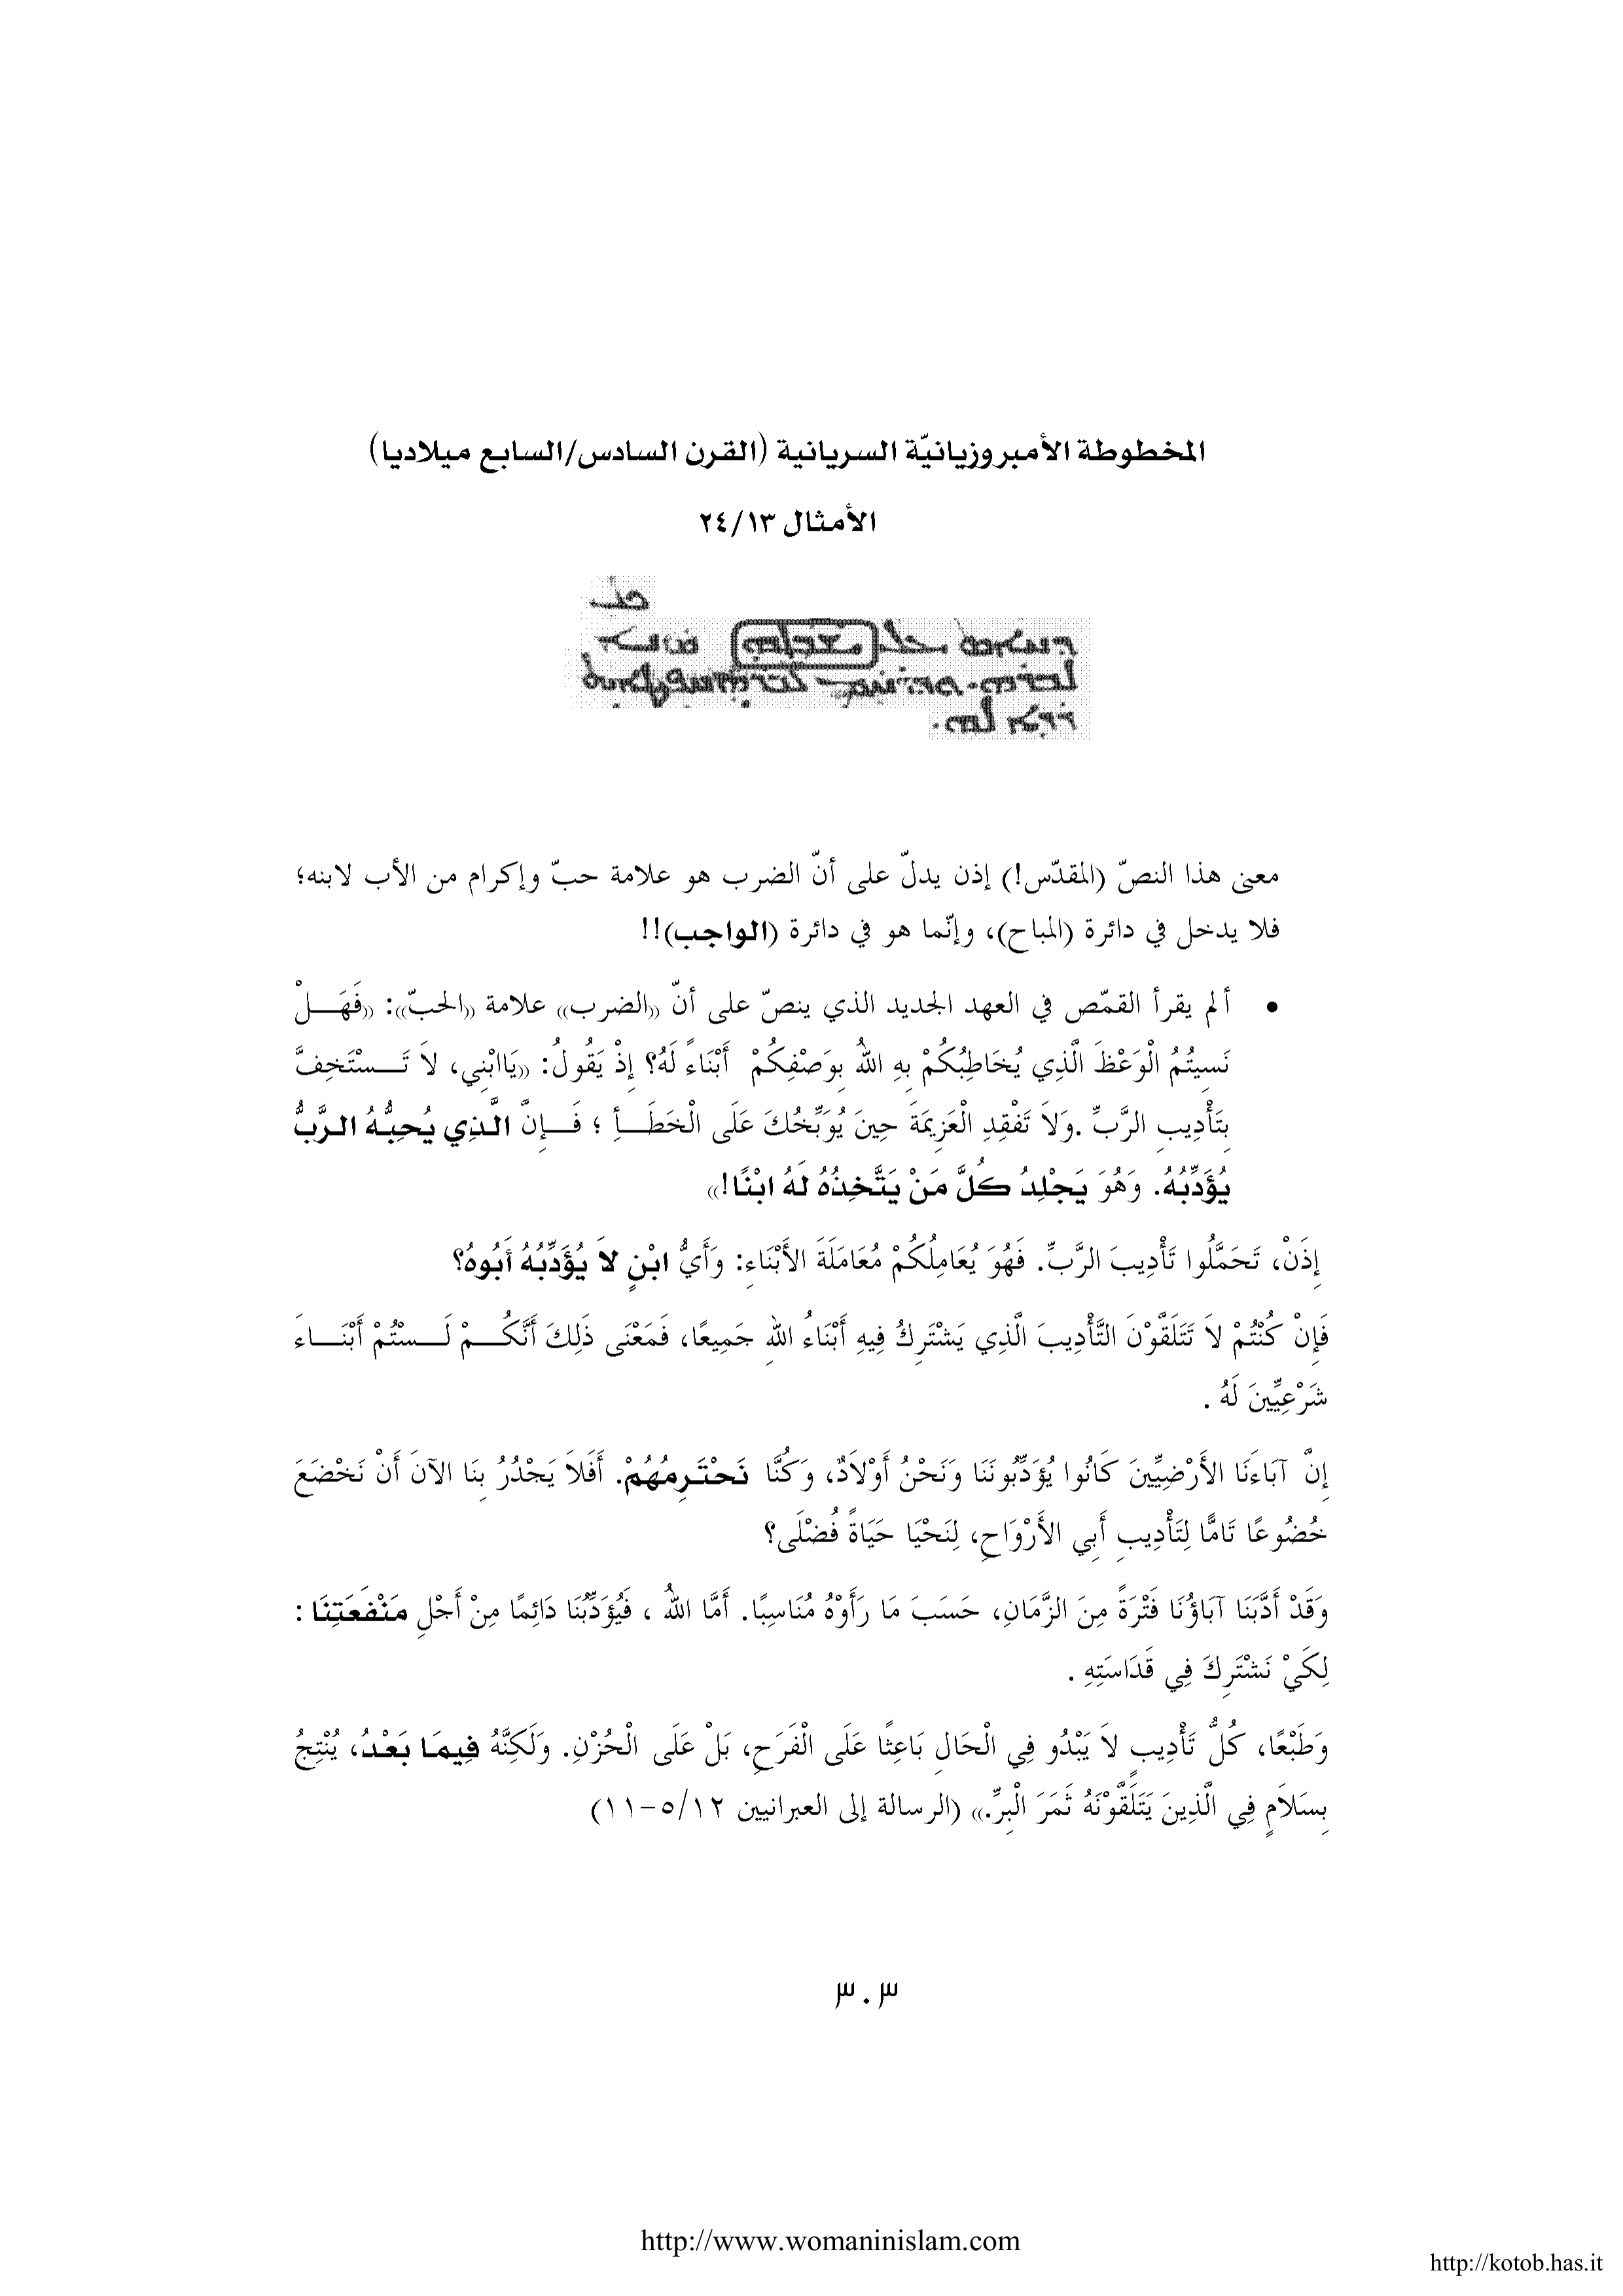 المخطوطة الأمبروزيانيّة السريانية (القرن السادس/السابع ميلاديا)
الأمثال ٢٤/١٣
معنى هذا النصّ (المقدّس!) إذن يدلّ على أنّ الضرب هو علامة حبّ وإكرام من الأب لابنه؛
فلا يدخل في دائرة (المباح)، وإنّما هو في دائرة (الواجب)!!
• ألم يقرأ القمّص في العهد الجديد الذي ينصّ على أنّ «الضرب» علامة «الحبّ»: «فَهَـــلْ
نَسِيتُمُ الْوَعْظَ الَّذِي يُخَاطِبُكُمْ بِهِ اللهُ بِوَصْفِكُمْ أَبْنَاءً لَهُ؟ إِذْ يَقُولُ: «يَاابْنِي، لاَ تَـــسْتَخِفَّ
بِتَأْدِيبِ الرَّبِّ .وَلاَ تَفْقِدِ الْعَزِيمَةَ حِينَ يُوَبِّخُكَ عَلَى الْخَطَـــأِ ؛ فَـــإِنَّ الَّذِي يُحِبُّهُ الرَّبُّ
يُؤَدِّبُهُ. وَهُوَ يَجْلِدُ كُلَّ مَنْ يَتَّخِذُهُ لَهُ ابْنًا!»
إِذَنْ، تَحَمَّلُوا تَأْدِيبَ الرَّبِّ. فَهُوَ يُعَامِلُكُمْ مُعَامَلَةَ الأَبْنَاءِ: وَأَيُّ ابْنٍ لاَ يُؤَدِّبُهُ أَبُوهُ؟
فَإِنْ كُنْتُمْ لاَ تَتَلَقَّوْنَ التَّأْدِيبَ الَّذِي يَشْتَرِكُ فِيهِ أَبْنَاءُ اللهِ جَمِيعًا، فَمَعْنَى ذَلِكَ أَنَّكُـــمْ لَـــسْتُمْ أَبْنَـــاءَ
شَرْعِيِّينَ لَهُ .
إِنَّ آبَاءَنَا الأَرْضِيِّينَ كَانُوا يُؤَدِّبُونَنَا وَنَحْنُ أَوْلاَدٌ، وَكُنَّا نَحْتَرِمُهُمْ. أَفَلاَ يَجْدُرُ بِنَا الآنَ أَنْ نَخْضَعَ
خُضُوعًا تَامًّا لِتَأْدِيبِ أَبِي الأَرْوَاحِ، لِنَحْيَا حَيَاةً فُضْلَى؟
وَقَدْ أَدَّبَنَا آبَاؤُنَا فَتْرَةً مِنَ الزَّمَانِ، حَسَبَ مَا رَأَوْهُ مُنَاسِبًا. أَمَّا اللهُ ، فَيُؤَدِّبُنَا دَائِمًا مِنْ أَجْلِ مَنْفَعَتِنَا :
لِكَيْ نَشْتَرِكَ فِي قَدَاسَتِهِ .
وَطَبْعًا، كُلُّ تَأْدِيبٍ لاَ يَبْدُو فِي الْحَالِ بَاعِثًا عَلَى الْفَرَحِ، بَلْ عَلَى الْحُزْنِ. وَلَكِنَّهُ فِيمَا بَعْدُ، يُنْتِجُ
بِسَلاَمٍ فِي الَّذِينَ يَتَلَقَّوْنَهُ ثَمَرَ الْبِرِّ.» (الرسالة إلى العبرانيين ٥/١٢-١١)
٣٠٣
http://www.womaninislam.com
http://kotob.has.it